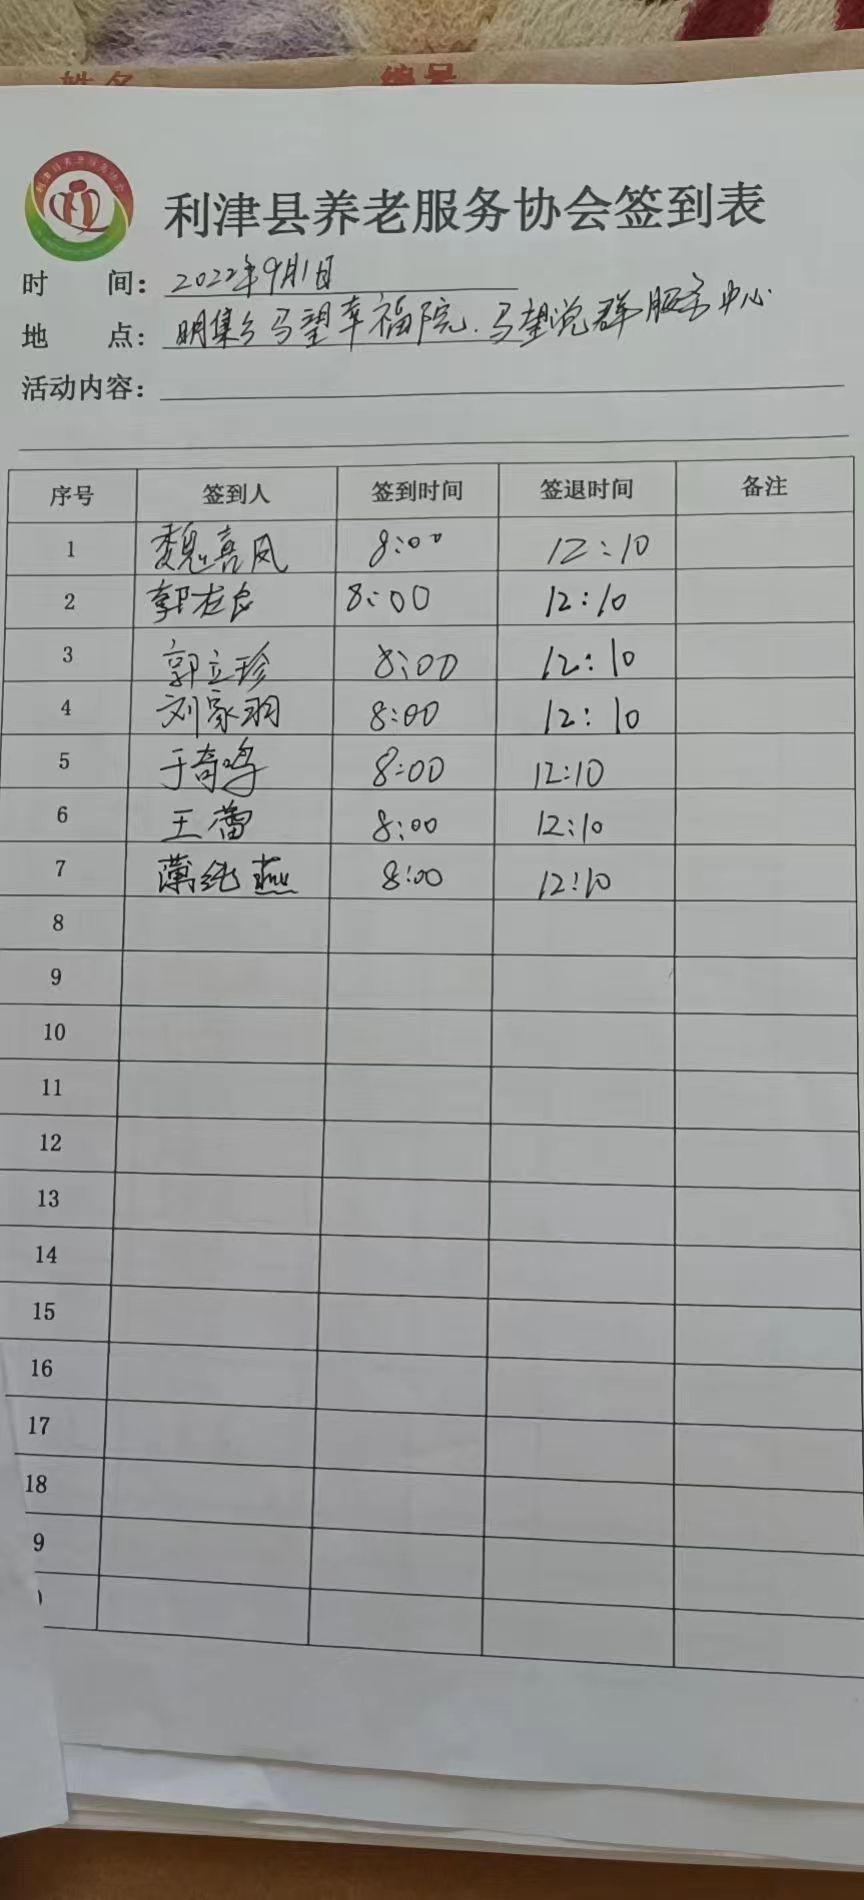 姓名 编号
利津县养老服务协会
利津县养老服务协会签到表
时 间: 2022年9月1日
地 点: 明集乡马望幸福院.马望党群服务中心
活动内容:
序号 签到人 签到时间 签退时间 备注
1 魏喜凤 8:00 12:10
2 郭在良 8:00 12:10
3 郭立珍 8:00 12:10
4 刘家羽 8:00 12:10
5 于奇鸣 8:00 12:10
6 王蕾 8:00 12:10
7 薄纯燕 8:00 12:10
8
9
10
11
12
13
14
15
16
17
18
9